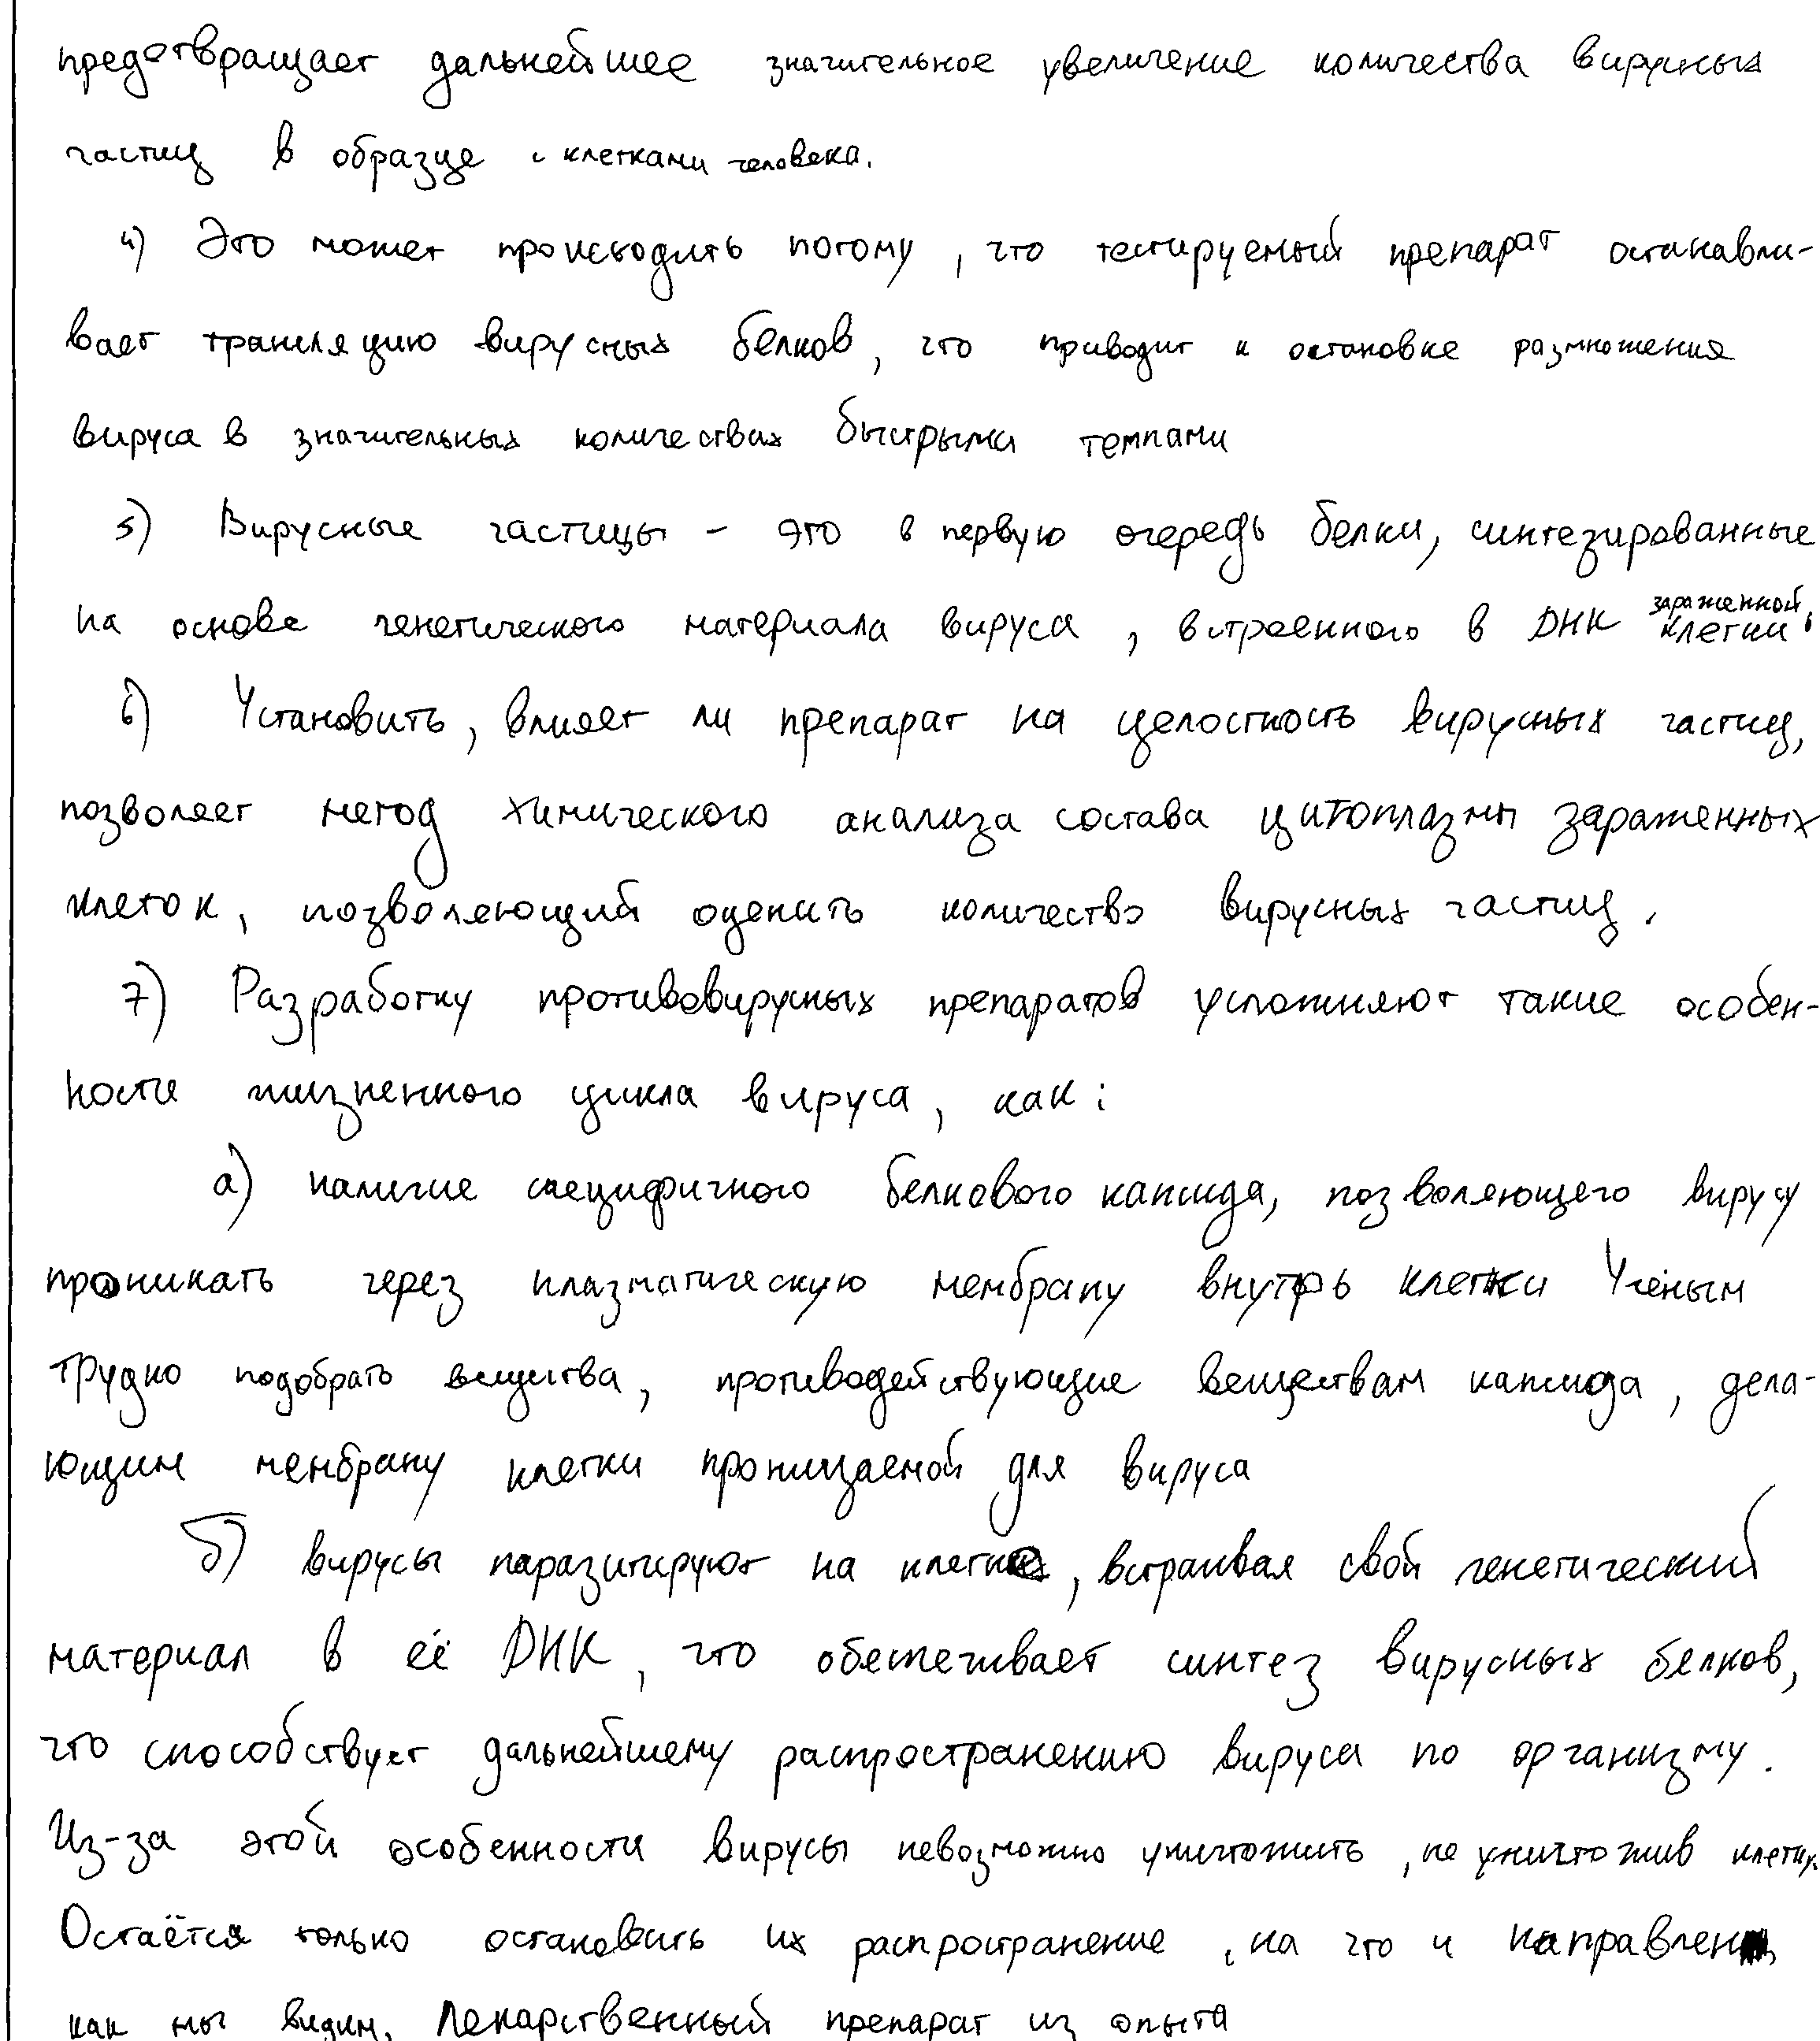 предотвращает дальнейшее значительное увеличение количества вирусных
частиц в образце с клетками человека.
4) Это может происходить потому, что тестируемый препарат останавли-
вает трансляцию вирусных белков, что приводит к остановке размножения
вируса в значительных количествах быстрыми темпами
5) Вирусные частицы - это в первую очередь белки, синтезированные
на основе генетического материала вируса, встроенного в ДНК зараженной клетки.
6) Установить, влияет ли препарат на целостность вирусных частиц,
позволяет метод химического анализа состава цитоплазмы зараженных
клеток, позволяющий оценить количество вирусных частиц.
7) Разработку противовирусных препаратов усложняют такие особен-
ности жизненного цикла вируса, как:
а) наличие специфичного белкового капсида, позволяющего вирусу
проникать через плазматическую мембрану внутрь клетки Учёным
трудно подобрать вещества, противодействующие веществам капсида, дела-
ющим мембрану клетки проницаемой для вируса
б) вирусы паразитируют на клетке, встраивая свой генетический
материал в её ДНК, что обеспечивает синтез вирусных белков,
что способствует дальнейшему распространению вируса по организму.
Из-за этой особенности вирусы невозможно уничтожить, не уничтожив клетку.
Остаётся только остановить их распространение, на что и направлен,
как мы видим, лекарственный препарат из опыта